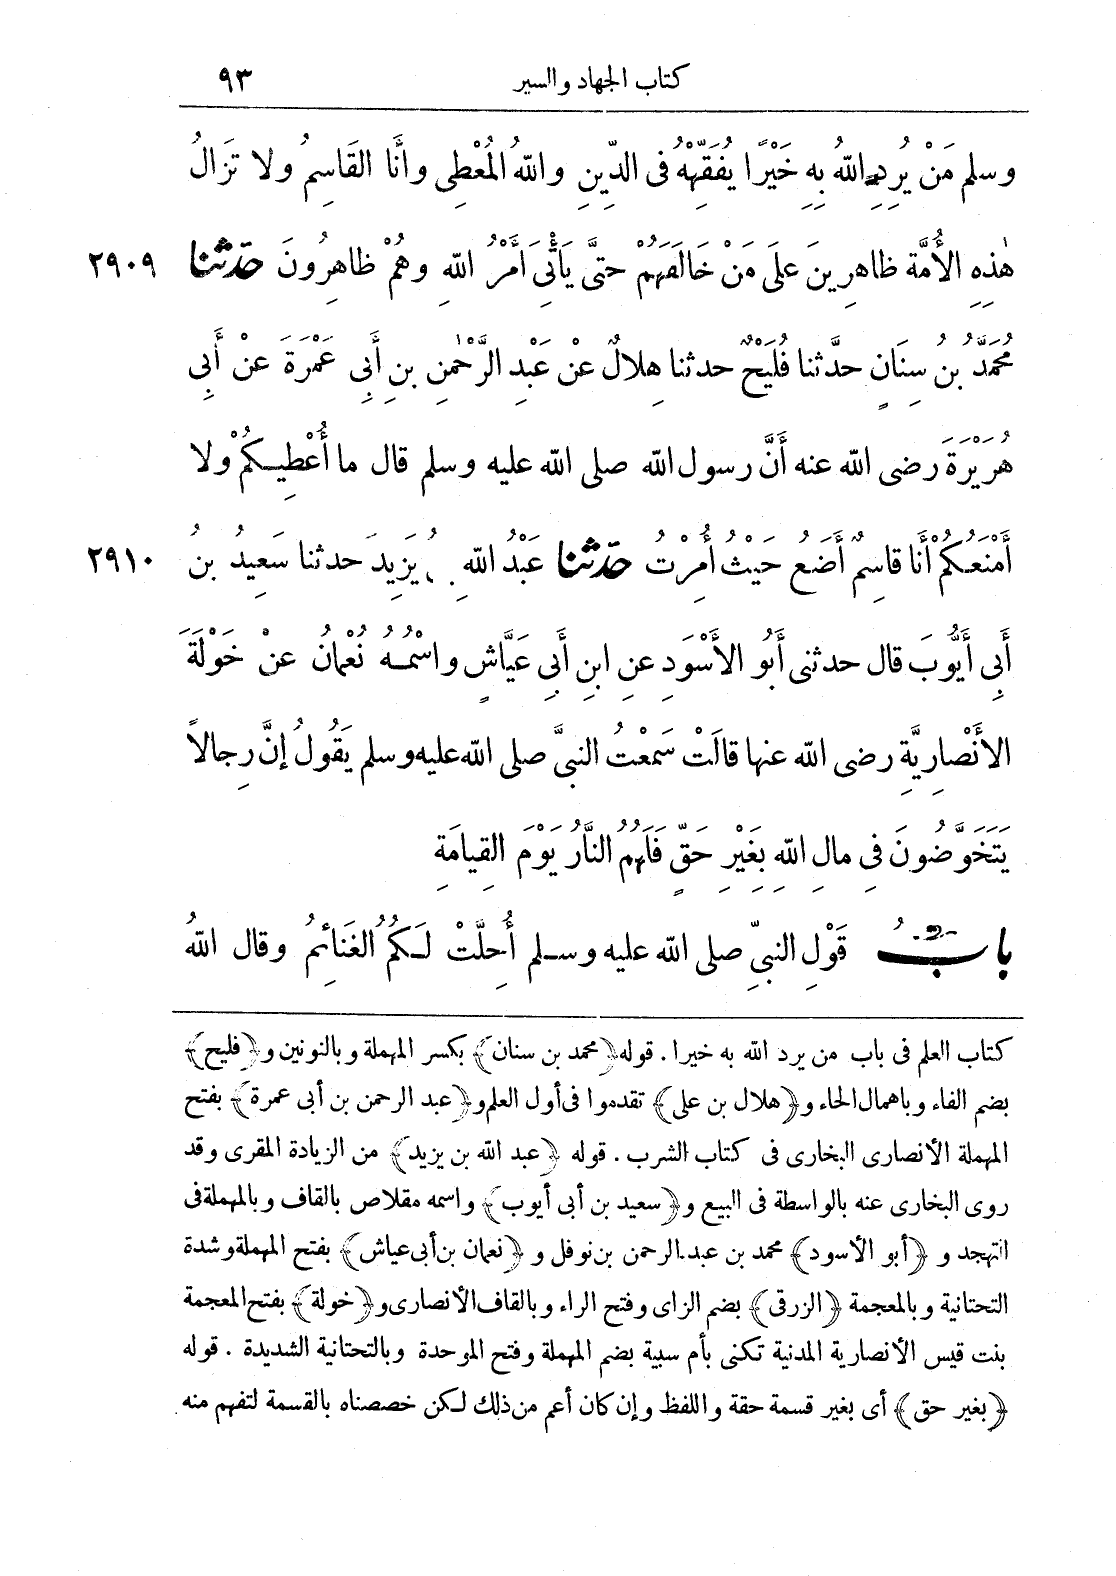 كتاب الجهاد والسير ٩٣
وسلم مَنْ يُرِدِ اللهُ بِهِ خَيْرًا يُفَقِّهْهُ فى الدِّينِ واللهُ المُعْطِى وأَنَا القَاسِمُ ولا تَزَالُ
هٰذِهِ الأُمَّة ظاهِرِينَ علَى مَنْ خَالَفَهُمْ حتَّى يَأْتِىَ أَمْرُ اللهِ وهُمْ ظاهِرُونَ حَدّثنا ٢٩٠٩
مُحَمَّدُ بنُ سِنَانٍ حدَّثنا فُلَيْحٌ حدثنا هِلالٌ عنْ عَبْدِ الرَّحْمٰنِ بنِ أَبِى عَمْرَةَ عنْ أَبِى
هُرَيْرَةَ رضى الله عنه أَنَّ رسول الله صلى الله عليه وسلم قال ما أُعْطِيكُمْ ولا
أَمْنَعُكُمْ أَنَا قاسِمٌ أَضَعُ حَيْثُ أُمِرْتُ حَدّثنا عَبْدُ اللهِ بنُ يَزِيدَ حدثنا سَعِيدُ بنُ ٢٩١٠
أَبِى أَيُّوبَ قال حدثنى أَبُو الأَسْوَدِ عنِ ابنِ أَبِى عَيَّاشٍ واسْمُهُ نُعْمانُ عنْ خَوْلَةَ
الأَنْصارِيَّةِ رضى الله عنها قالَتْ سَمِعْتُ النبىَّ صلى الله عليه وسلم يَقُولُ إنَّ رِجالاً
يَتَخَوَّضُونَ فِى مالِ اللهِ بِغَيْرِ حَقٍّ فَلَهُمُ النَّارُ يَوْمَ القِيامَةِ
بابُ قَوْلِ النبىِّ صلى الله عليه وسلم أُحِلَّتْ لَكُمُ الغَنائِمُ وقال اللهُ
كتاب العلم فى باب من يرد الله به خيرا . قوله ﴿محمد بن سنان﴾ بكسر المهملة وبالنونين و﴿فليح﴾
بضم الفاء وباهمال الحاء و﴿هلال بن على﴾ تقدموا فى أول العلم و﴿عبد الرحمن بن أبى عمرة﴾ بفتح
المهملة الأنصارى البخارى فى كتاب الشرب . قوله ﴿عبد الله بن يزيد﴾ من الزيادة المقرى وقد
روى البخارى عنه بالواسطة فى البيع و﴿سعيد بن أبى أيوب﴾ واسمه مقلاص بالقاف وبالمهملة فى
التهجد و ﴿أبو الأسود﴾ محمد بن عبد الرحمن بن نوفل و ﴿نعمان بن أبى عياش﴾ بفتح المهملة وشدة
التحتانية وبالمعجمة ﴿الزرقى﴾ بضم الزاى وفتح الراء وبالقاف الأنصارى و﴿خولة﴾ بفتح المعجمة
بنت قيس الأنصارية المدنية تكنى بأم سبية بضم المهملة وفتح الموحدة وبالتحتانية الشديدة . قوله
﴿بغير حق﴾ أى بغير قسمة حقة واللفظ وإن كان أعم من ذلك لكن خصصناه بالقسمة لتفهم منه